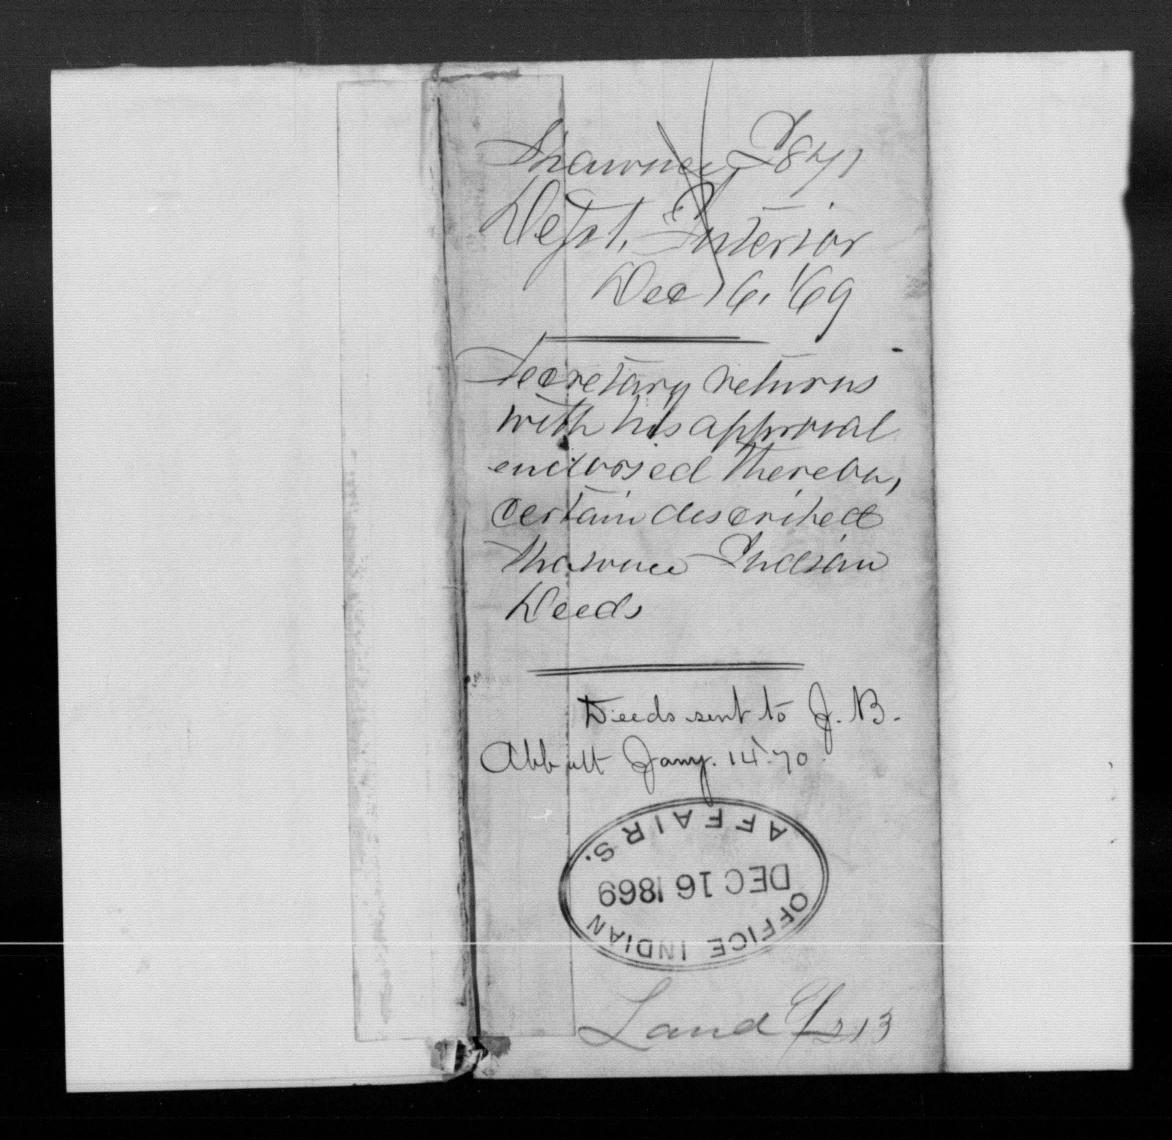 Shawnee I 871
Dept. Interior
Dec 16, '69
Secretary returns
with his approval
endorsed thereon,
certain described
Shawnee Indian
Deeds
Deeds sent to J. B.
Abbott Jany. 14. 70
OFFICE INDIAN
DEC 16 1869
AFFAIRS.
Land